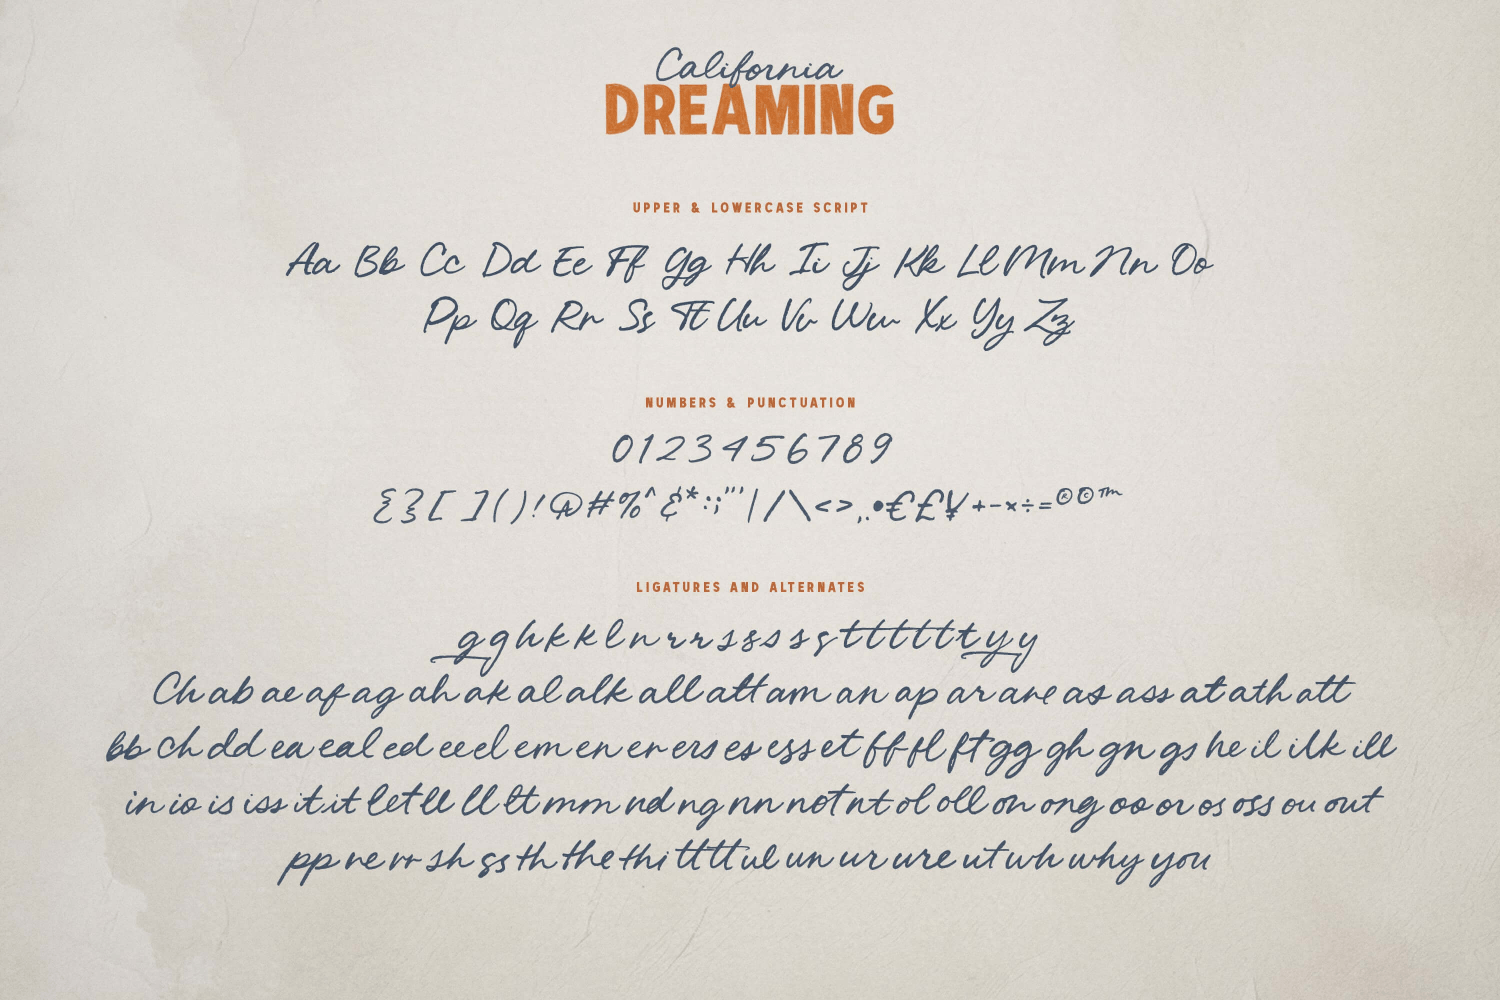 California
DREAMING
UPPER & LOWERCASE SCRIPT
Aa Bb Cc Dd Ee Ff Gg Hh Ii Jj Kk Ll Mm Nn Oo
Pp Qq Rr Ss Tt Uu Vv Ww Xx Yy Zz
NUMBERS & PUNCTUATION
0123456789
{}[ ]()!@#%^&*:;"'|/\<>,.•€£¥+-×÷=®©™
LIGATURES AND ALTERNATES
g g h k k l n r r s s s s s t t t t t t y y
Ch ab ae af ag ah ak al alk all att am an ap ar are as ass at ath att
bb ch dd ea eal ed ee el em en er ers es ess et ff fl ft gg gh gn gs he il ilk ill
in io is iss it it let ll ll lt mm nd ng nn not nt ol oll on ong oo or os oss ou out
pp re rr sh ss th the thi tt tt ul un ur ure ut wh why you